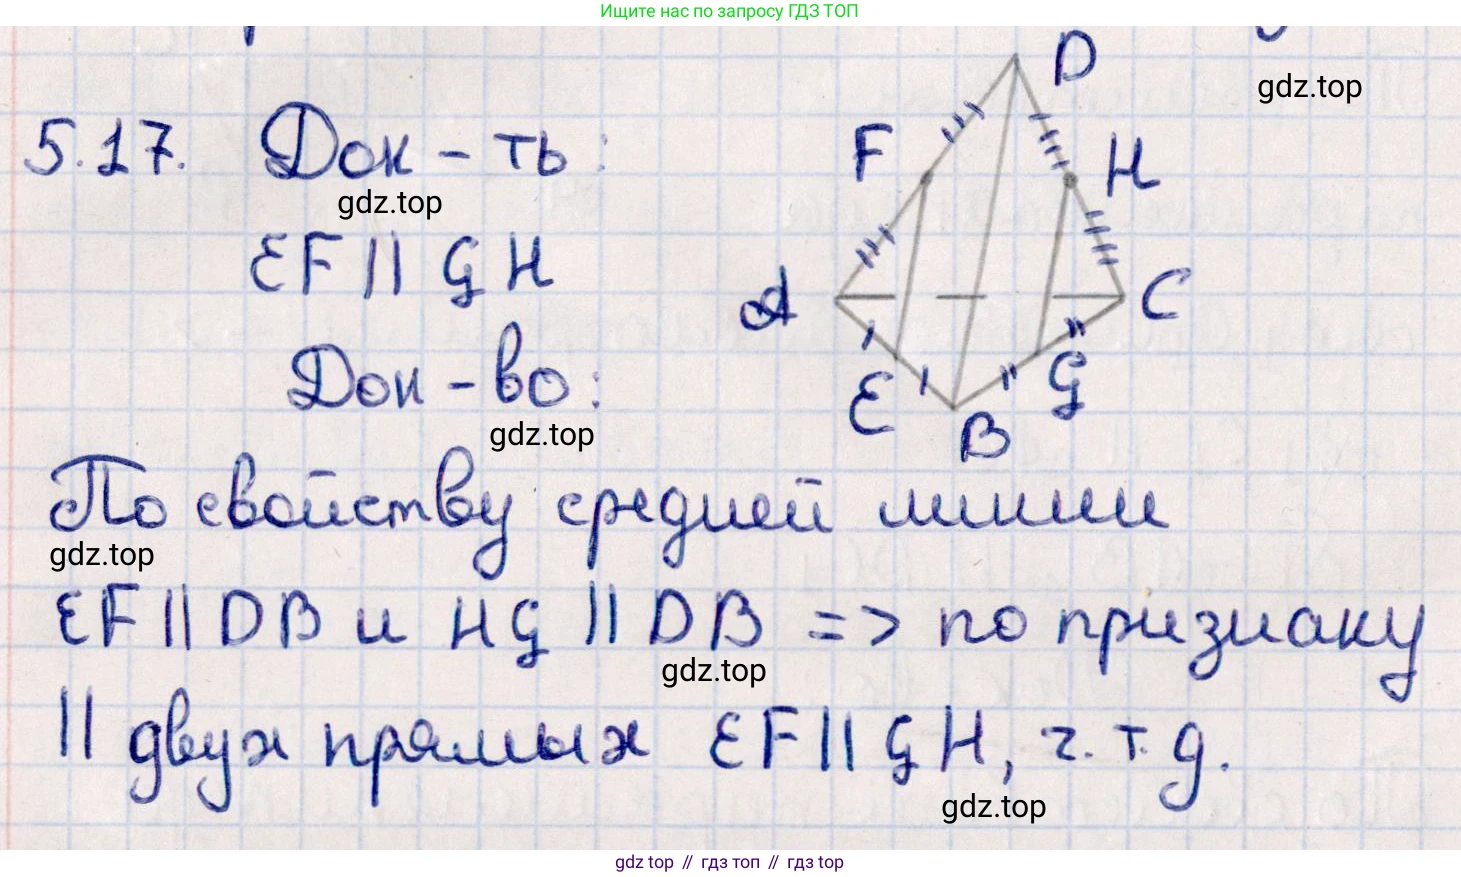 Ищите нас по запросу ГДЗ ТОП
gdz.top
5.17. Док-ть:
gdz.top
EF || GH
Док-во:
gdz.top
D
F
H
A
C
E
G
B
По свойству средней линии
gdz.top
EF || DB и HG || DB => по признаку
gdz.top
|| двух прямых EF || GH, ч.т.д.
gdz.top
gdz top // гдз топ // гдз top